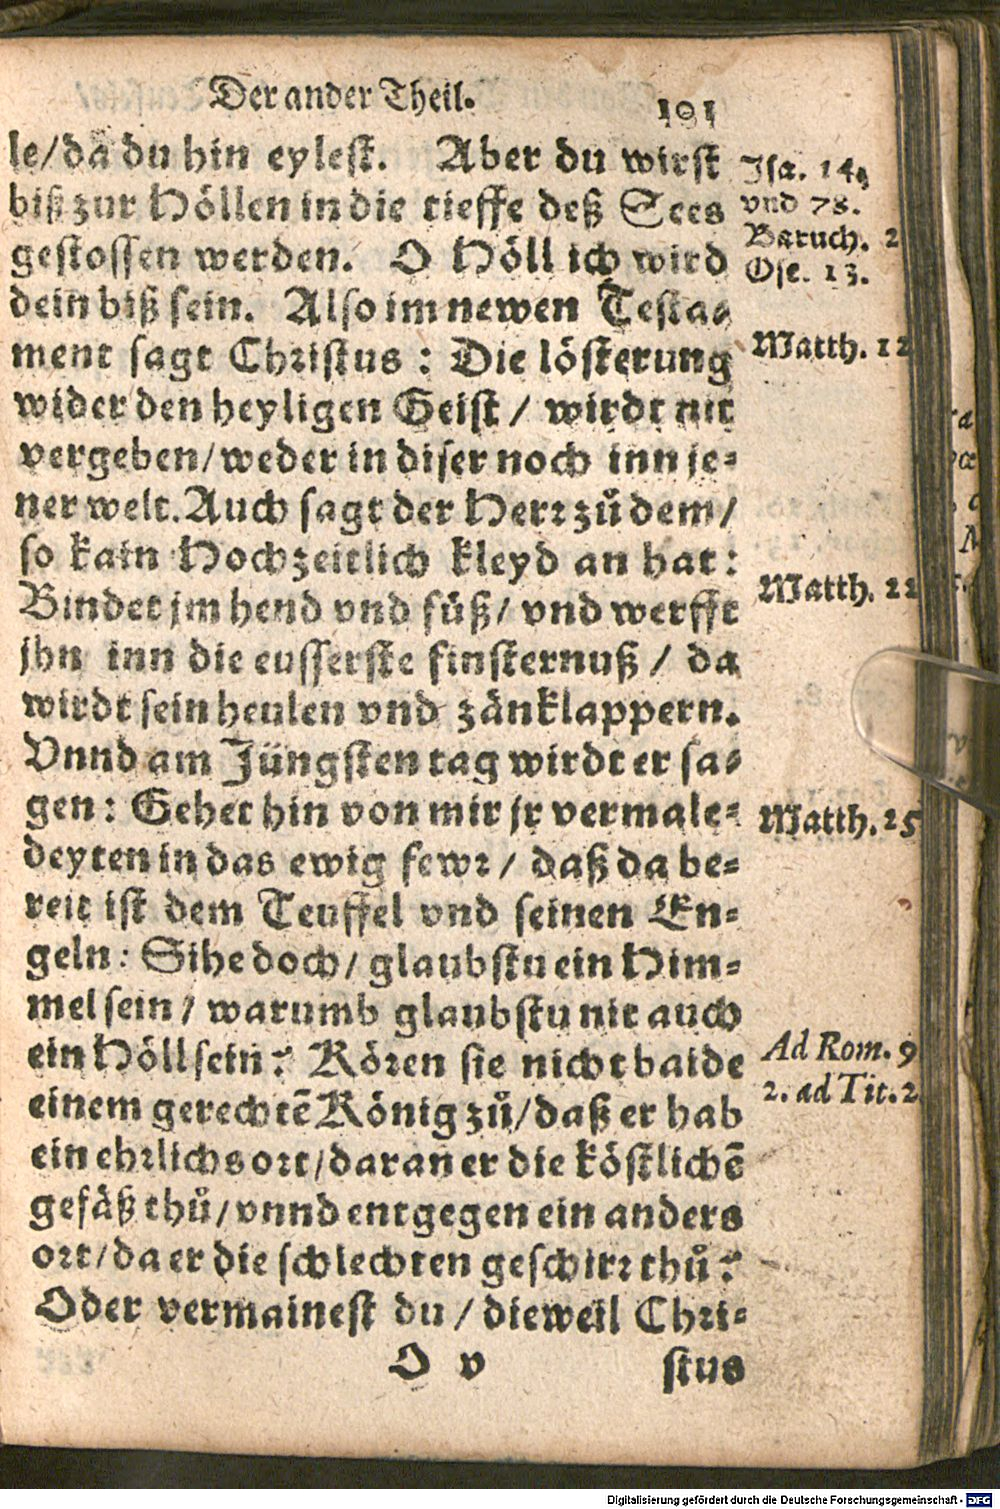 Der ander Theil. 101
le/da du hin eylest. Aber du wirst
biß zur Höllen in die tieffe deß Sees
gestossen werden. O Höll ich wird
dein biß sein. Also im newen Testa-
ment sagt Christus: Die lösterung
wider den heyligen Geist / wirdt nit
vergeben/weder in diser noch inn je-
ner welt. Auch sagt der Herr zů dem/
so kain Hochzeitlich kleyd an hat:
Bindet jm hend vnd füß/ vnd werfft
jhn inn die eusserste finsternuß / da
wirdt sein heulen vnd zänklappern.
Vnnd am Jüngsten tag wirdt er sa-
gen: Gehet hin von mir jr vermale-
deyten in das ewig fewr / daß da be-
reit ist dem Teuffel vnd seinen En-
geln: Sihe doch/ glaubstu ein Him-
mel sein / warumb glaubstu nit auch
ein Höll sein? Kören sie nicht baide
einem gerechtē König zů/daß er hab
ein ehrlichs ort/daran er die köstlichē
gefäß thů/vnnd entgegen ein anders
ort/da er die schlechten geschirr thů?
Oder vermainest du / dieweil Chri-
O v stus
Isa. 14.
vnd 78.
Baruch. 2
Ose. 13.
Matth. 12
Matth. 22
Matth. 25
Ad Rom. 9
2. ad Tit. 2
Digitalisierung gefördert durch die Deutsche Forschungsgemeinschaft - DFG